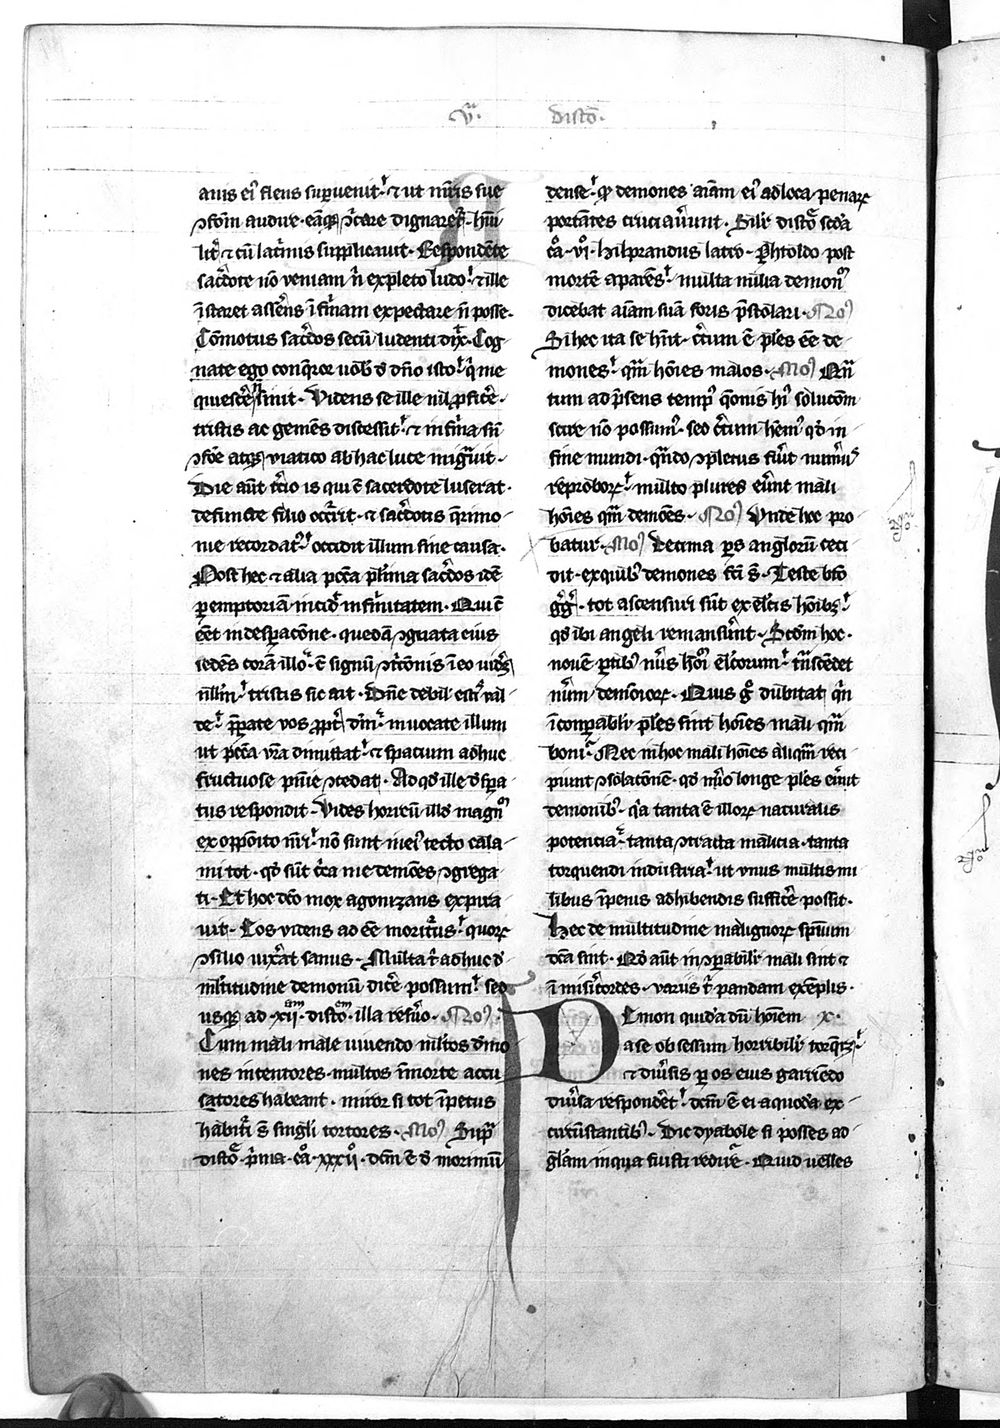 vᵃ. distō.
auis eiꝰ flens supervenit. ⁊ ut mr̄is sue
ꝯfōm audire. eāqꝫ ꝯitare dignaret᷑. hūi
lit᷑ ⁊ cū lac̄mis supplicauit. Respondēte
sac̄dote nō veniam n̄ expleto ludo. ⁊ ille
īstaret assēns īfirmam expectare n̄ posse.
Cōmotus sac̄dos secū ludenti dix̄. Cog
nate ego conq̄ror uob̄ đ dn̄o isto. q̄ me
quiescēn̄ sinit. Videns se ille nil ꝓficē.
tristis ac gemēs discessit. ⁊ infirma sn̄
ꝯfōe atqꝫ viatico ab hac luce migᵃuit.
Die aūt tc̄io is qui cū sacerdote luserat.
defuncte filio occrīt. ⁊ sac̄dotis q̄rimo
nie recordatꝰ occidit illum sine causa.
Post hec ⁊ alia pcc̄a pl̄ima sac̄dos idē
ꝑemptoriam incidꝰ infirmitatem. Qui cū
eēt in desꝑacōne. quedā ꝯgnata eius
sedēs corā illo. cū signū ꝯtc̄onis ī eo uidꝫ
nullū. tristis sic ait. Dn̄e debil estis ual
de. p̄parate vos ꝓpt᷑ dn̄m. inuocate illum
ut pcc̄a vr̄a dimittat. ⁊ spacium adhuc
fructuose pn̄ie ꝯcedat. Ad qđ ille đspa
tus respondit. Vides horreū illđ magnū
ex opposito nr̄i. nō sunt ineiꝰ tecto cala
mi tot. qđ sūt cc̄a me demōes ꝯgrega
ti. Et hoc dc̄o mox agonizans expira
uit. Eos videns ad eē moritᵘrus. quorꝝ
ꝯsilio uixᵃt sanus. Multa t᷑ adhuc đ
multitudine demonū dicē possum. seđ
usqꝫ ad xijᵃᵐ distōᵐ. illa reservo. Noꝰ.
Cum mali male vivendo multos demo
nes incentores. multos īmorte accu
satores habeant. miror si tot īpetus
habituri sūt singli tortores. Moꝰ Supᵃ
distōe pͥma. cā. xxxijº. dcm ē đ morimū
dense. qͥ demones aiam eiꝰ ad loca penarꝝ
portātes cruciauerunt. Silꝰ distōe scđa
cō. vjº. hilprandus latro. P̄htoldo post
mortē aparēs. multa milia demonꝰ
dicebat aiam suā foris p̄stolari. Noꝰ
Si hec ita se hn̄t. c̄tum ē pl̄es eē de
mones. qm̄ hoīes malos. Moꝰ Qn̄
tum ad p̄sens tempꝰ qōnis hꝰ solucōm
scire nō possumꝰ. seđ c̄tum hemꝰ qđ in
fine mundi. qn̄do ꝯpletus fūit numꝰ
reproborꝝ. multo plures erūt mali
hoīes qm̄ demōes. Noꝰ Unde hoc pro
batur. Moꝰ Decima ꝑs angelorū ceci
dit. ex quibꝰ demones fc̄i sūt. Teste bt̄o
gᵍgº. tot ascensuri sūt ex elc̄is hoībꝫ.
qđ ibi angeli remansūnt. Scđm hoc.
nouē ꝑtibꝰ nūs hoīm elc̄orum. tn̄scēdet
nūm demōiorꝝ. Quis gͦ dubitat qn̄
īcomꝑabili pl̄es sint hoīes mali qm̄
boni. Nec in hoc mali hoīes aliqm̄ reci
piunt ꝯsolacōnē. qđ nūo longe pl̄es erūt
demonibꝰ. qͥa tanta ē illorꝝ naturalis
potencia. tanta ꝯtracta malicia. tanta
torquendi industria. ut vnus multis mi
libus īpenis adhibendis sufficē possit.
Hec de multitudine malignorꝝ spūum
dc̄a sint. Qđ aūt in ꝯꝑabilꝰ mali sint ⁊
īmisic̄ordes. variis t᷑ pandam exēplis.
Emon quidā dū hoīem x.
D ase obsessum horribilꝰ torqꝫret.
⁊ diūsis ꝑ os eius garriēdo
diūsa respondēt. dcm̄ ē ei a quoda ex
circūstantibꝰ. Dic dyabole si posses ad
gl̄am inqua fuisti redire. Quid uelles